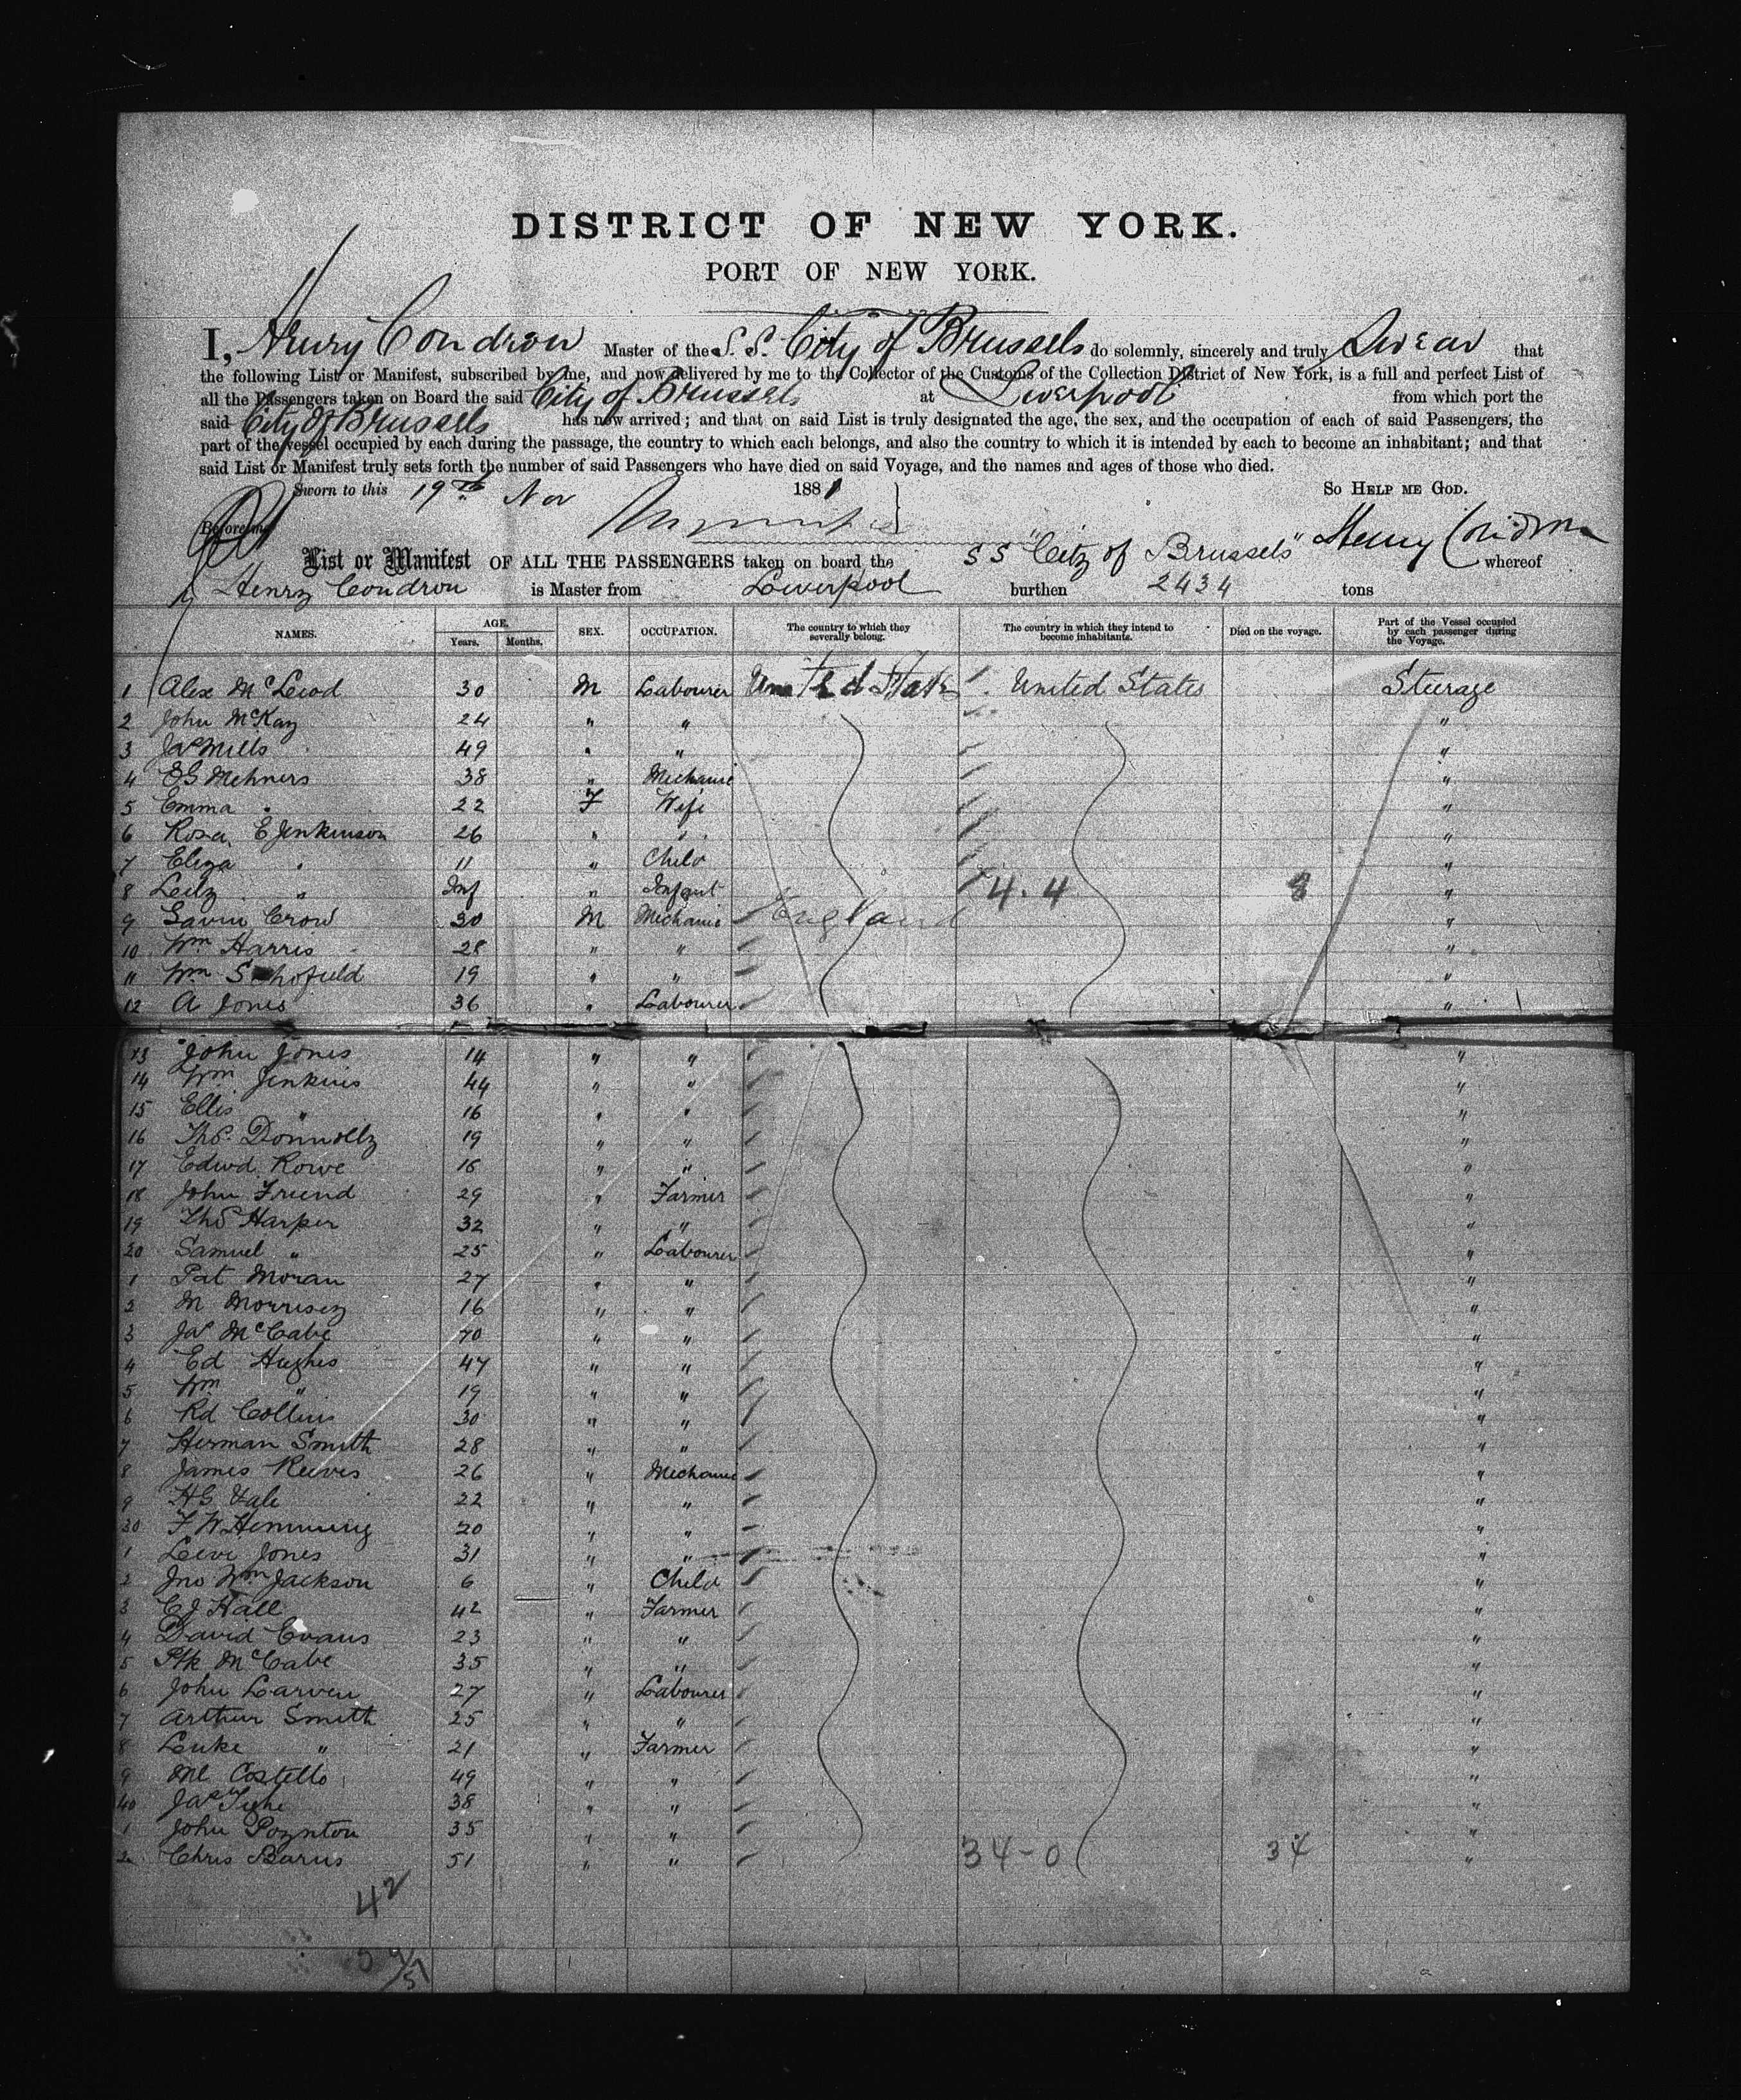 DISTRICT OF NEW YORK.
PORT OF NEW YORK.
I, Henry Condron Master of the S. S. City of Brussels do solemnly, sincerely and truly Swear that
the following List or Manifest, subscribed by me, and now delivered by me to the Collector of the Customs of the Collection District of New York, is a full and perfect List of
all the Passengers taken on Board the said City of Brussels at Liverpool from which port the
said City of Brussels has now arrived; and that on said List is truly designated the age, the sex, and the occupation of each of said Passengers, the
part of the vessel occupied by each during the passage, the country to which each belongs, and also the country to which it is intended by each to become an inhabitant; and that
said List or Manifest truly sets forth the number of said Passengers who have died on said Voyage, and the names and ages of those who died.
Sworn to this 19th Nov 1881 So HELP ME GOD.
Before me
Henry Condron
List or Manifest OF ALL THE PASSENGERS taken on board the SS "City of Brussels" whereof
Henry Condron is Master from Liverpool burthen 2434 tons
NAMES. AGE. Years. Months. SEX. OCCUPATION. The country to which they severally belong. The country in which they intend to become inhabitants. Died on the voyage. Part of the Vessel occupied by each passenger during the Voyage.
1 Alex McLeod 30 M Labourer United States United States Steerage
2 John McKay 24 " " "
3 Jas Mills 49 " " "
4 EG Mehners 38 " Mechanic "
5 Emma " 22 F Wife "
6 Rosa E Jenkinson 26 " " "
7 Eliza " 11 " Child "
8 Leily " Inf " Infant 4.4 8 "
9 Gavin Crow 30 M Mechanic England "
10 Wm Harris 28 " " "
11 Wm Schofield 19 " " "
12 A Jones 36 " Labourer "
13 John Jones 14 " " "
14 Wm Jenkins 44 " " "
15 Ellis " 16 " " "
16 Thos Donnolly 19 " " "
17 Edwd Rowe 16 " " "
18 John Friend 29 " Farmer "
19 Thos Harper 32 " " "
20 Samuel " 25 " Labourer "
1 Pat Moran 27 " " "
2 M Morrisey 16 " " "
3 Jas McCabe 70 " " "
4 Ed Hughes 47 " " "
5 Wm " 19 " " "
6 Rd Collins 30 " " "
7 Herman Smith 28 " " "
8 James Reeves 26 " Mechanic "
9 HG Vale 22 " " "
30 F W Hemming 20 " " "
1 Levi Jones 31 " " "
2 Jno Wm Jackson 6 " Child "
3 CJ Hall 42 " Farmer "
4 David Evans 23 " " "
5 Ptk McCabe 35 " " "
6 John Larven 27 " Labourer "
7 Arthur Smith 25 " " "
8 Luke " 21 " Farmer "
9 Ml Costello 49 " " "
40 Jas Tighe 38 " " "
1 John Poynton 35 " " "
2 Chris Barns 51 " " 34-0 34 "
42